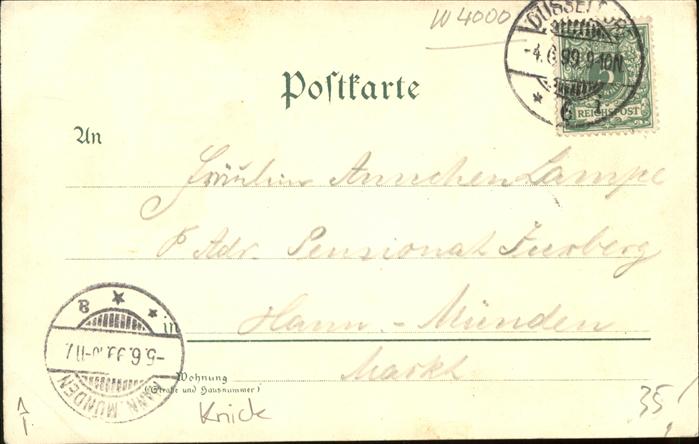 W 4000
DÜSSELDORF
-4.6.99.9-10N
6 i
5
REICHSPOST
Postkarte
An
Fräulein Annchen Lampe
P. Adr. Pensionat
Hann.-Münden
in
Markt
Wohnung
(Straße und Hausnummer)
HANN. MÜNDEN
-5.6.99.
a
Knick
35